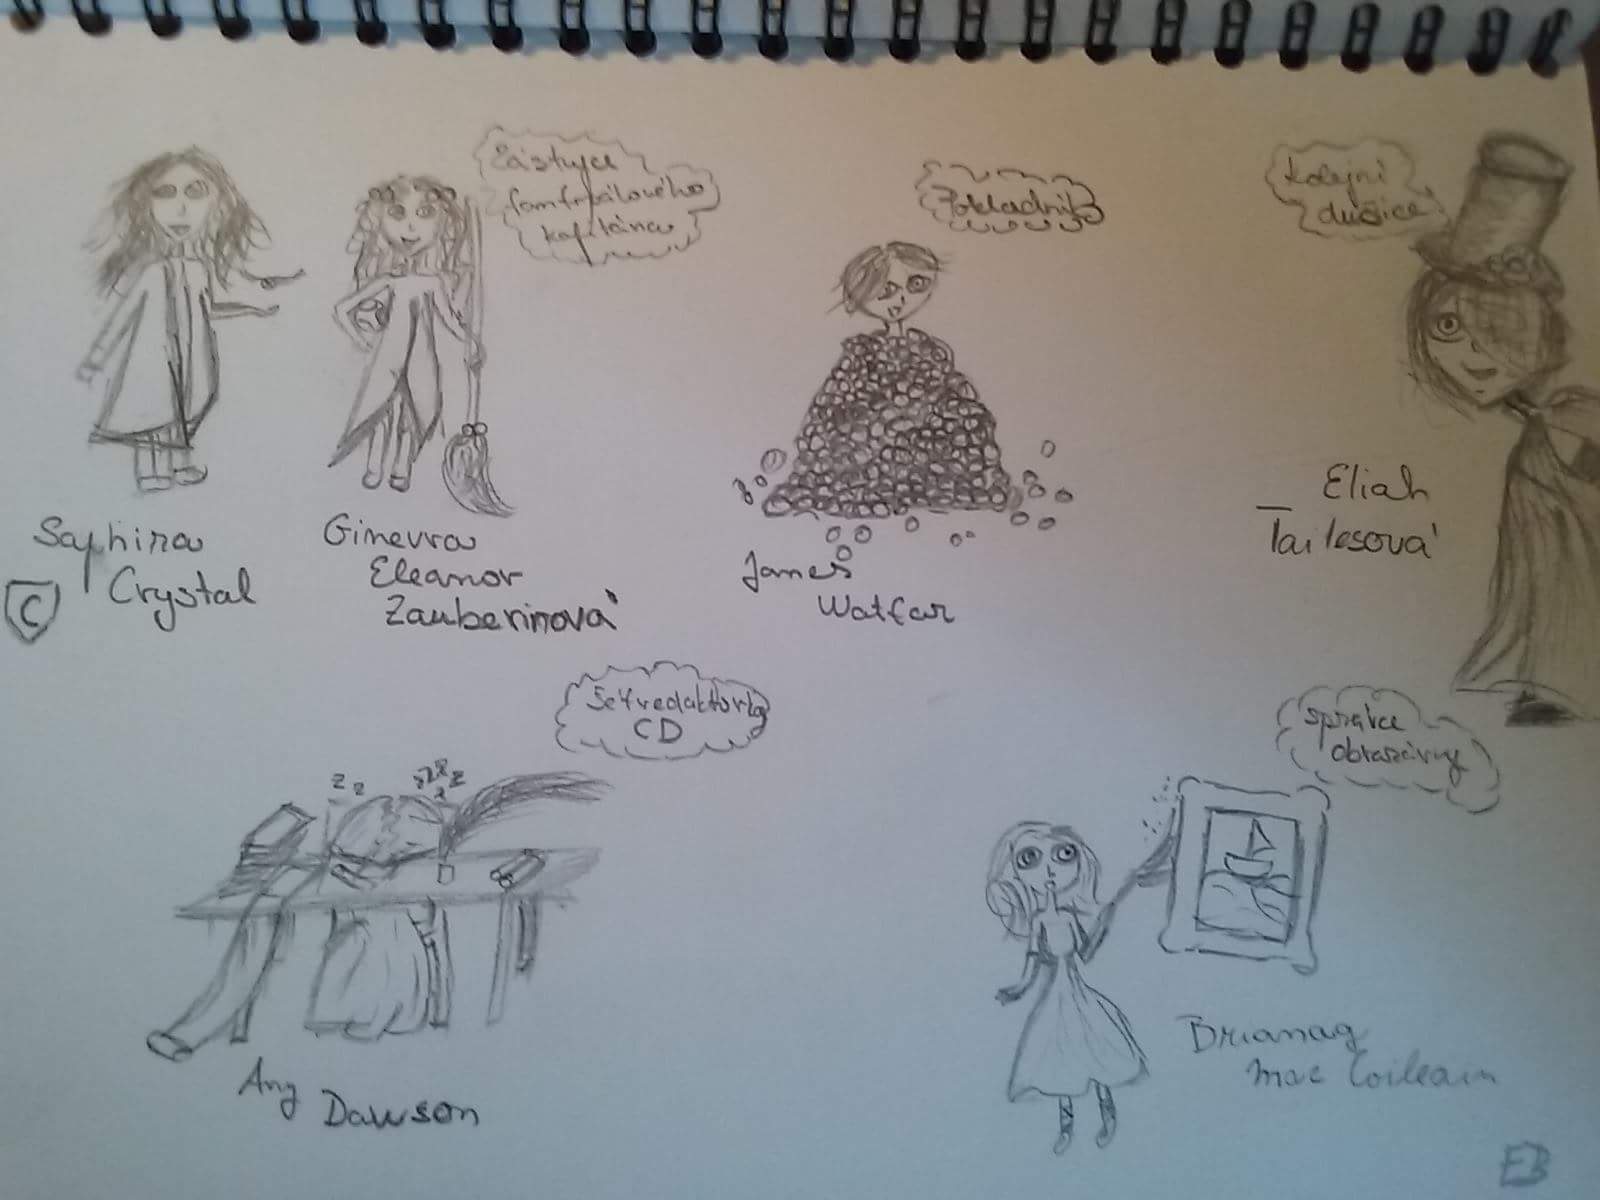 Zástupce
famfrpálového
kapitána
Pokladník
Kolejní
dušice
Saphira
Crystal
C
Ginevra
Eleanor
Zauberinová
James
Watfar
Eliah
Tailesová
Šéfredaktorka
CD
zz
zzzz
z
správce
obrazárny
Any
Dawson
Brianag
mac Coileain
EB